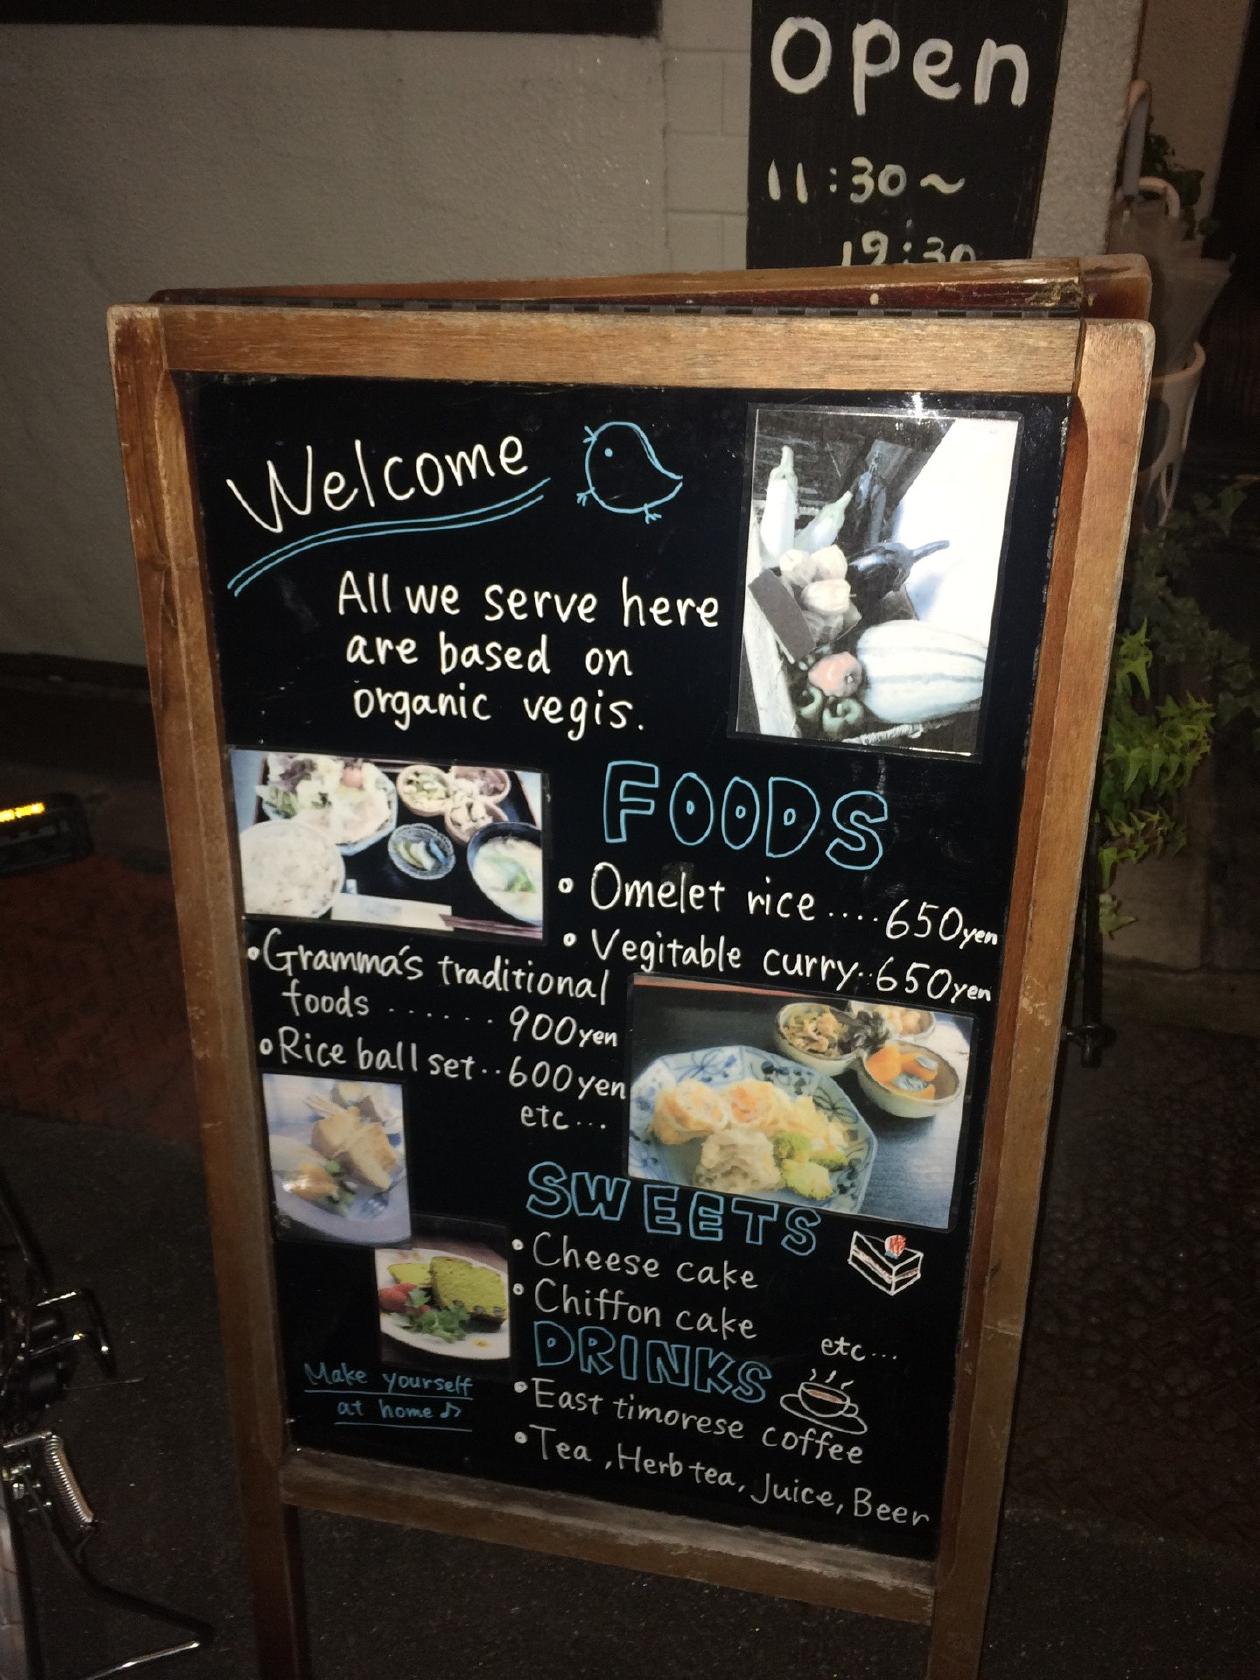 Open
11:30~
19:30
Welcome
All we serve here
are based on
organic vegis.
FOODS
• Omelet rice .... 650yen
• Vegitable curry.. 650yen
• Gramma's traditional
foods ...... 900yen
• Rice ball set.. 600yen
etc...
SWEETS
• Cheese cake
• Chiffon cake
etc...
DRINKS
• East timorese coffee
• Tea, Herb tea, Juice, Beer
Make yourself
at home♪